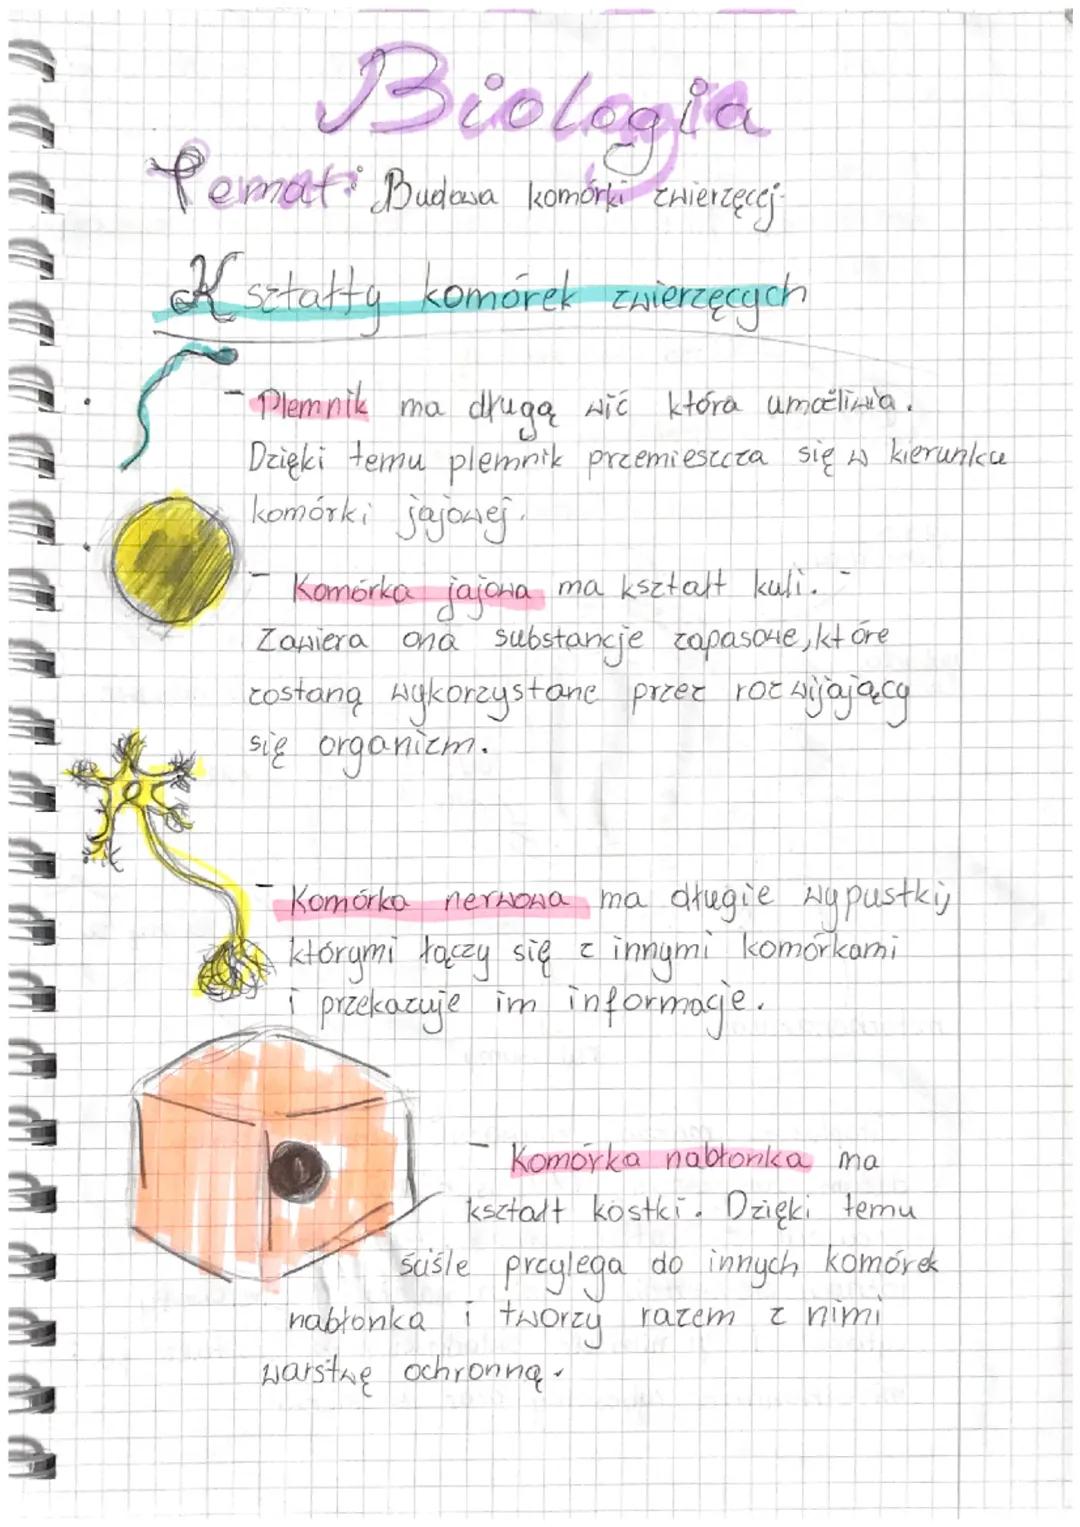 Biologia
Temat: Budowa komórki zwierzęcej.
Kształty komórek zwierzęcych
- Plemnik ma długą wić która umożliwia.
Dzięki temu plemnik przemieszcza się w kierunku
komórki jajowej.
- Komórka jajowa ma kształt kuli. -
Zawiera ona substancje zapasowe, które
zostaną wykorzystane przez rozwijający
się organizm.
- Komórka nerwowa ma długie wypustki,
którymi łączy się z innymi komórkami
i przekazuje im informacje.
- Komórka nabłonka ma
kształt kostki. Dzięki temu
ściśle przylega do innych komórek
nabłonka i tworzy razem z nimi
warstwę ochronną.